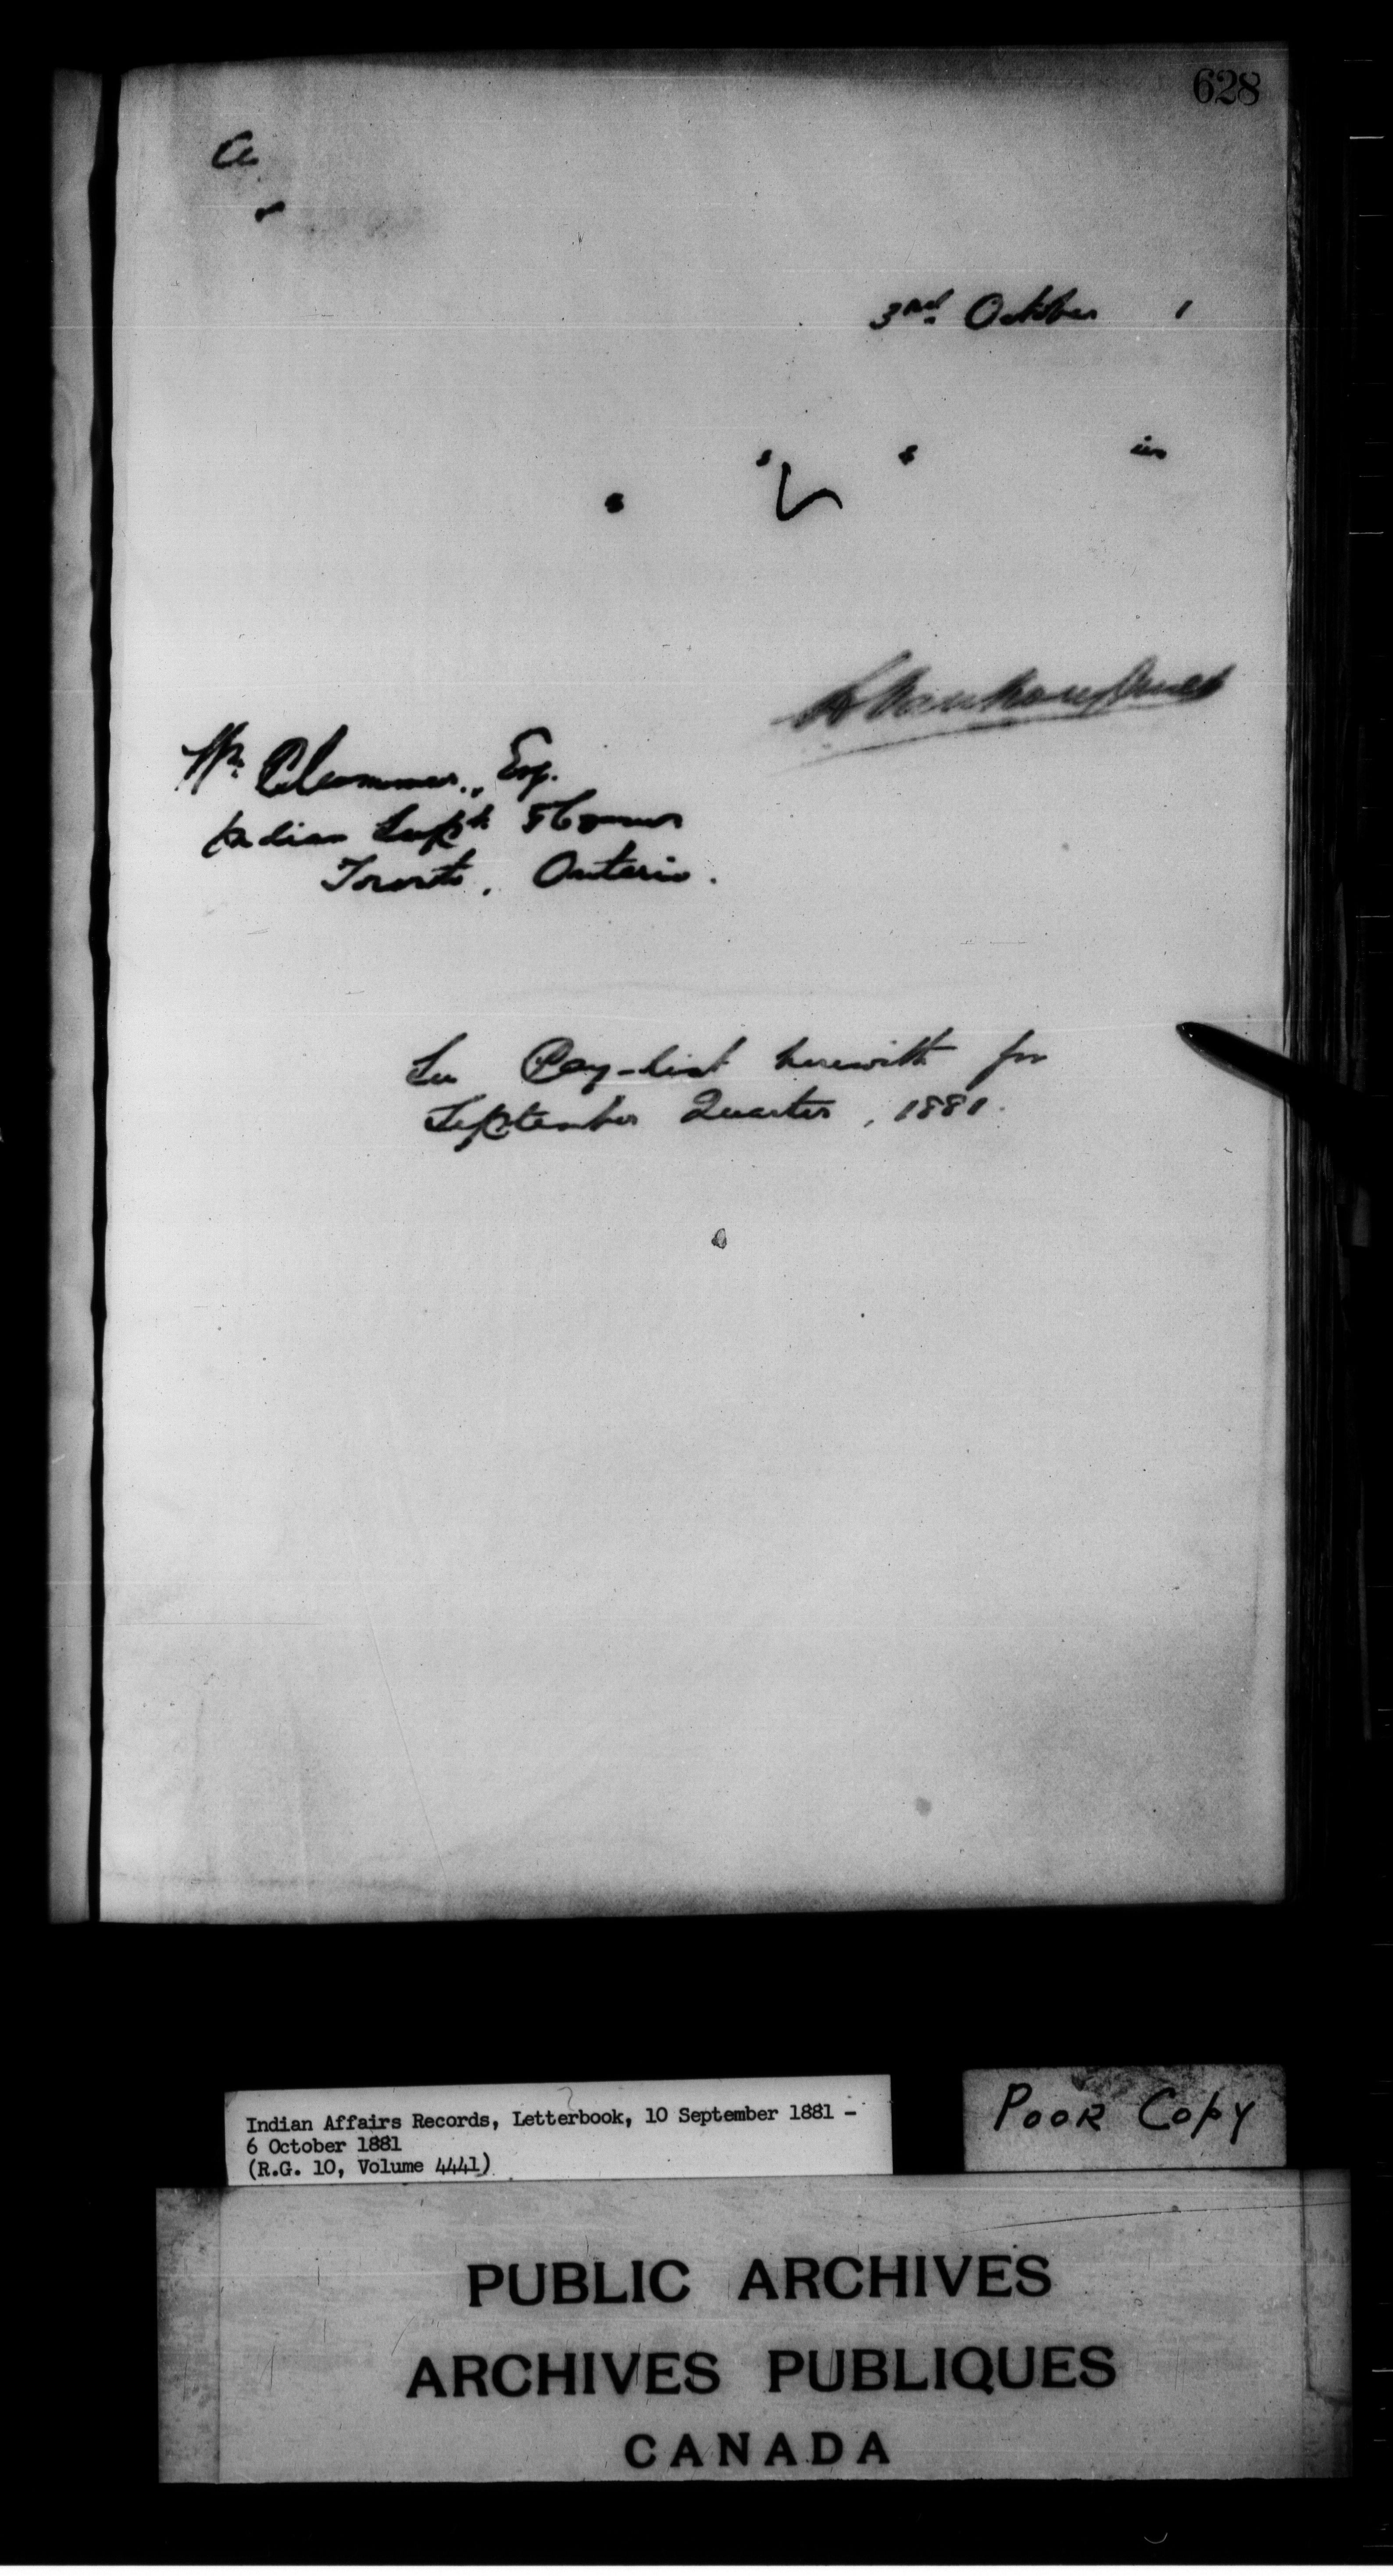 628
a
3rd. October 1
s s in
s
L. Vankoughnet
Wm. Plummer., Esq.
Indian Supt. & Commr
Toronto, Ontario.
See Pay-list herewith for
September Quarter, 1881.
Indian Affairs Records, Letterbook, 10 September 1881 -
6 October 1881
(R.G. 10, Volume 4441)
POOR COPY
PUBLIC ARCHIVES
ARCHIVES PUBLIQUES
CANADA